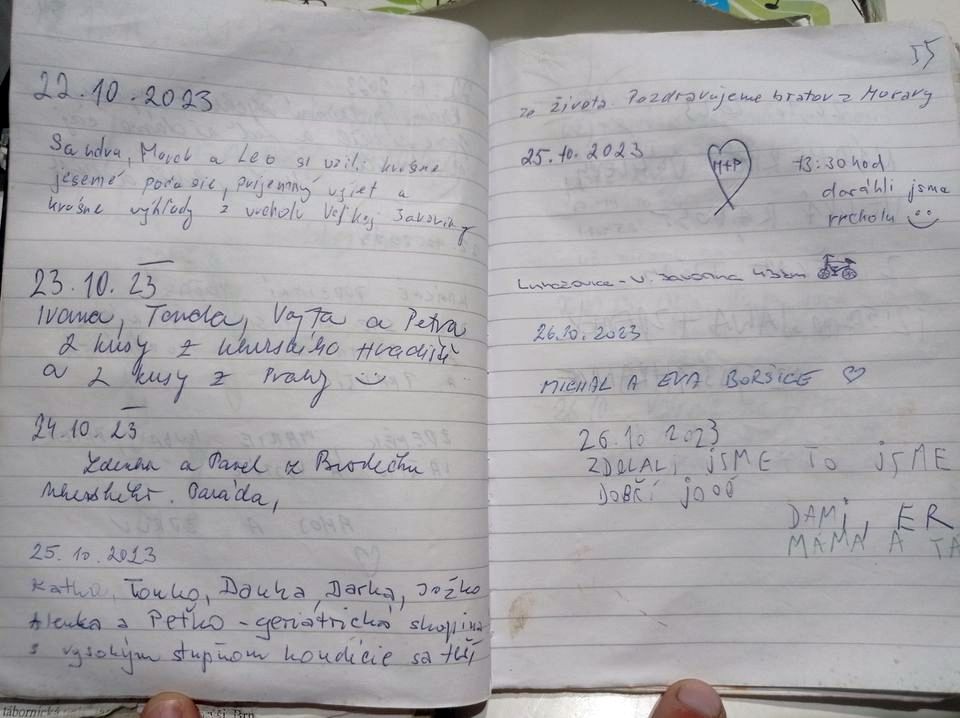 22.10.2023
Sandra, Marek a Leo si užili krásne
jesenné počasie, príjemný výlet a
krásne výhľady z vrcholu Veľkej Javoriny
23.10.23
Ivana, Tonda, Vojta a Petra
2 kusy z Uherského Hradiště
a 2 kusy z Prahy
24.10.23
Zdenka a Pavel z Brodečku
Paráda,
25.10.2023
Katka, Tonko, Danka, Darka, Jožko
Alenka a Peťko - geriatrická skupina
s vysokým stupňom kondície sa teší
55
zo života Pozdravujeme bratov z Moravy
25.10.2023
M+P
13:30 hod
doráhli jsme
vrcholu
Luhačovice - V. Javorina 43km
26.10.2023
MICHAL A EVA BORŠICE
26.10 2023
ZDOLALI JSME TO JSME
DOBŘÍ JOOO
DAMI, ER
MÁMA A TÁ
tábornické